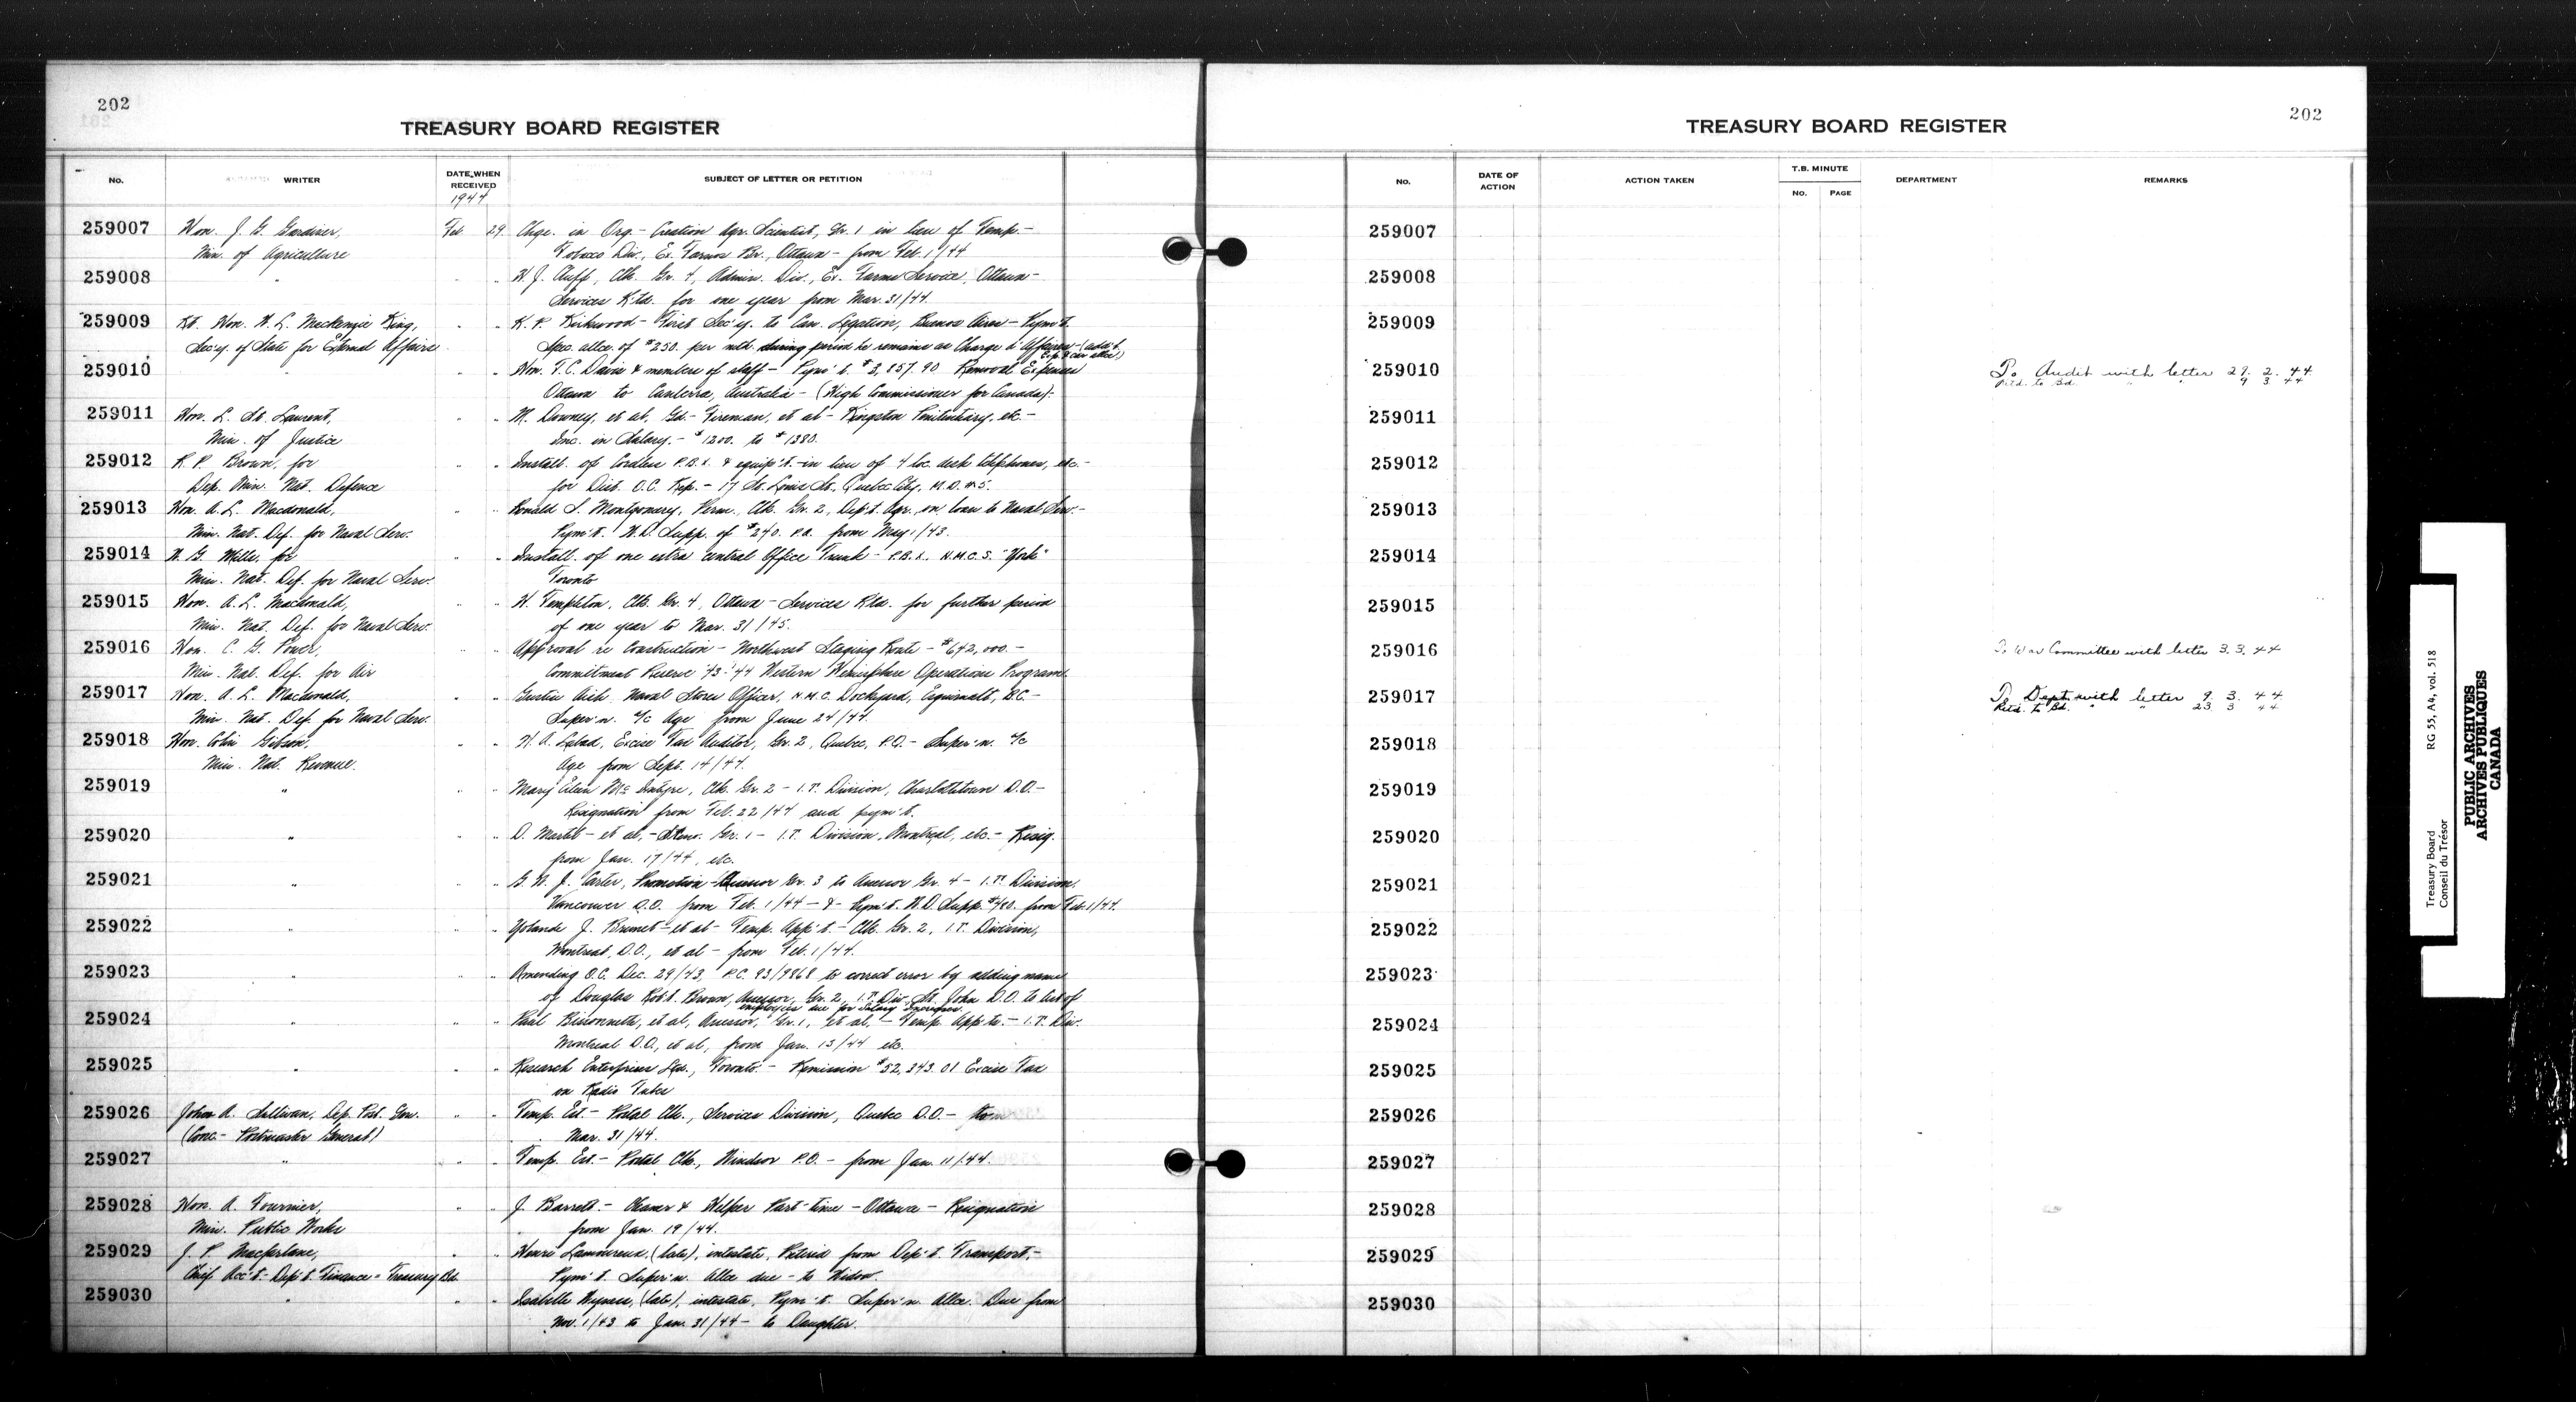 202
TREASURY BOARD REGISTER
No. WRITER DATE WHEN RECEIVED SUBJECT OF LETTER OR PETITION
1944
259007 Hon. J. G. Gardiner, Feb 29 Chge. in Org. - Creation Agr. Scientist, Gr. 1 in lieu of Temp. -
Min. of Agriculture Tobacco Div., Ex. Farms Br., Ottawa - from Feb. 1/44
259008 " " " W. J. Cluff, Clk. Gr. 4, Admin. Div., Ex. Farms Service, Ottawa -
Services R'td. for one year from Mar. 31/44.
259009 Rt. Hon. W. L. Mackenzie King, " " K. P. Kirkwood - First Sec'y. to Can. Legation, Buenos Aires - Pym't.
Sec'y. of State for External Affairs Spec. allce. of $250. per mth. during period he remains as Charge d'Affaires - (
259010 " " " Hon. T. C. Davis & members of staff - Pym't. $3,857.90 Removal Expenses
Ottawa to Canberra, Australia - (High Commissioner for Canada).
259011 Hon. L. St. Laurent, " " M. Downey, et al, Gd. - Fireman, et al - Kingston Penitentiary, etc. -
Min. of Justice Inc. in Salary. - $1200. to $1380.
259012 R. P. Brown, for " " Install. of Cordless P.B.X. & equip't. - in lieu of 4 loc. desk telephones, etc. -
Dep. Min. Nat. Defence for Dist. O.C. Rep. - 17 St. Louis St., Quebec City, M.D. #5.
259013 Hon. A. L. Macdonald, " " Ronald S. Montgomery, Perm. Clk. Gr. 2, Dep't. Agr., on loan to Naval Serv. -
Min. Nat. Def. for Naval Serv. Pym't. W.D. Supp. of $240. P.A. from May 1/43.
259014 W. G. Mills, for " " Install. of one extra Central Office Trunk - P.B.X. H.M.C.S. "York"
Min. Nat. Def. for Naval Serv. Toronto
259015 Hon. A. L. Macdonald, " " W. Templeton, Clk. Gr. 4, Ottawa - Services R'td. for further period
Min. Nat. Def. for Naval Serv. of one year to Mar. 31/45.
259016 Hon. C. G. Power, " " Approval re Construction - Northwest Staging Route - $642,000. -
Min. Nat. Def. for Air Commitment Reserve '43-'44 Western Hemisphere Operations Program.
259017 Hon. A. L. Macdonald, " " Naval Store Officer, H.M.C. Dockyard, Esquimalt, B.C. -
Min. Nat. Def. for Naval Serv. Super'n. a/c Age from June 24/44.
259018 Hon. Colin Gibson, " " Excise Tax Auditor, Gr. 2, Quebec, P.Q. - Super'n. a/c
Min. Nat. Revenue. Age from Sept. 14/44.
259019 " " " Mary Eileen McIntyre, Clk. Gr. 2 - I.T. Division, Charlottetown D.O. -
Resignation from Feb. 22/44 and pym't.
259020 " " " D. Martel - et al, - Steno. Gr. 1 - I.T. Division, Montreal, etc. - Resig.
from Jan. 17/44, etc.
259021 " " " G. W. J. Carter, Promotion - Assessor Gr. 3 to Assessor Gr. 4 - I.T. Division
Vancouver D.O. from Feb. 1/44 - & - Pym't. W.D. Supp. from Feb. 1/44.
259022 " " " Yolande J. Brunet - et al - Temp. App't. - Clk. Gr. 2, I.T. Division,
Montreal, D.O., et al - from Feb. 1/44.
259023 " " " Amending O.C. Dec. 29/43, P.C. 93/9868 to correct error by adding name
of Douglas Rob't. Brown, Assessor, Gr. 2, I.T. Div., St. John D.O. to list of
employees due for Salary Increases.
259024 " " " Paul Bissonnette, et al, Assessor, Gr. 1, et al. - Temp. App'ts. - I.T. Div.
Montreal D.O., et al, from Jan. 13/44 etc.
259025 " " " Research Enterprises Ltd., Toronto. - Remission $52,343.01 Excise Tax
on Radio Tubes
259026 John A. Sullivan, Dep. Post. Gen. " " Temp. Est. - Postal Clk., Services Division, Quebec D.O. - from
(Conc. - Postmaster General) Mar. 31/44.
259027 " " " Temp. Est. - Postal Clk., Windsor P.O. - from Jan. 11/44.
259028 Hon. A. Fournier, " " J. Barrett. - Cleaner & Helper Part-time - Ottawa - Resignation
Min. Public Works from Jan. 19/44.
259029 J. P. Macfarlane, " " Henri Lamoureux, (late), intestate, Retired from Dep't. Transport. -
Chief Acc't. - Dep't. Finance - Treasury Bd. Pym't. Super'n. Allce due - to Widow.
259030 " " " Isabelle (late), intestate, Pym't. Super'n. Allce. Due from
Nov. 1/43 to Jan. 31/44 - to Daughter.
202
TREASURY BOARD REGISTER
No. DATE OF ACTION ACTION TAKEN T.B. MINUTE DEPARTMENT REMARKS
No. PAGE
259007
259008
259009
259010 To Audit with letter 29. 2. 44.
Ret'd. to Bd. " " 9 3 44
259011
259012
259013
259014
259015
259016 To War Committee with letter 3. 3. 44
259017 To Dept. with letter 9. 3. 44
Ret'd. to Bd. " " 23 3 44
259018
259019
259020
259021
259022
259023
259024
259025
259026
259027
259028
259029
259030
Treasury Board RG 55, A4, vol. 518
Conseil du Trésor
PUBLIC ARCHIVES
ARCHIVES PUBLIQUES
CANADA